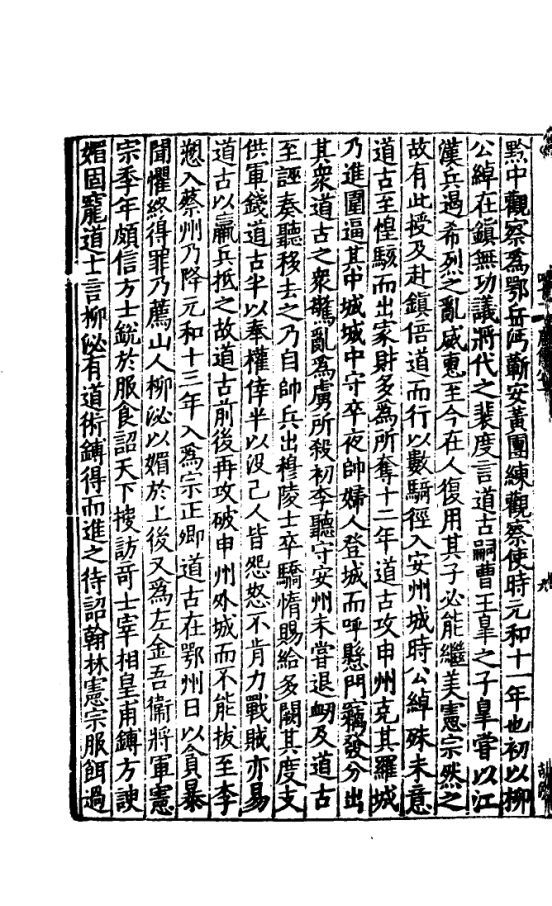 黔中觀察爲鄂岳沔蘄安黃團練觀察使時元和十一年也初以柳
公綽在鎮無功議將代之裴度言道古嗣曹王皐之子皐嘗以江
漢兵遏希烈之亂威惠至今在人復用其子必能繼美憲宗然之
故有此授及赴鎮倍道而行以數騎徑入安州城時公綽殊未意
道古至惶駭而出家財多爲所奪十二年道古攻申州克其羅城
乃進圍逼其中城城中守卒夜帥婦人登城而呼懸門竊發分出
其衆道古之衆驚亂爲虜所殺初李聽守安州未嘗退衂及道古
至誣奏聽移去之乃自帥兵出穆陵士卒驕惰賜給多闕其度支
供軍錢道古半以奉權倖半以沒己人皆怨怒不肯力戰賊亦易
道古以羸兵抵之故道古前後再攻破申州外城而不能拔至李
愬入蔡州乃降元和十三年入爲宗正卿道古在鄂州日以貪暴
聞懼終得罪乃薦山人柳泌以媚於上後又爲左金吾衞將軍憲
宗季年頗信方士銳於服食詔天下搜訪奇士宰相皇甫鎛方諛
媚固寵道士言柳泌有道術鎛得而進之待詔翰林憲宗服餌過